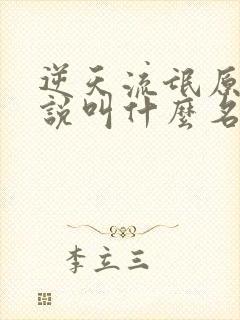 逆天流氓原
說叫什麼名
李立三